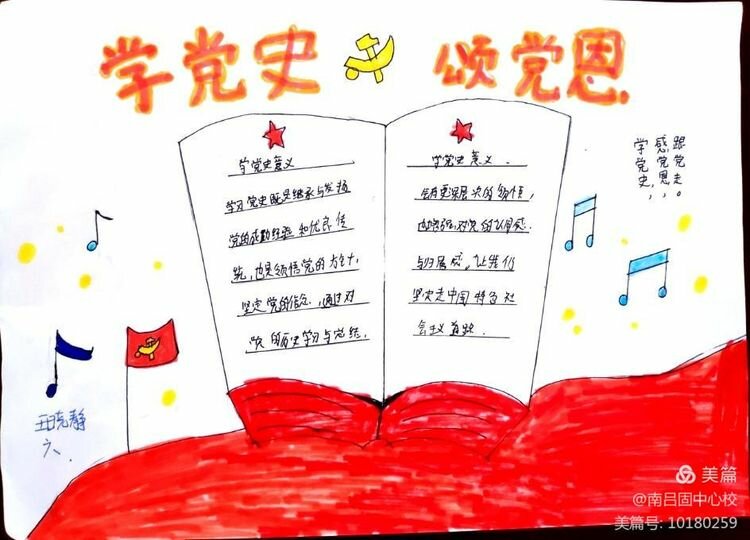 学党史 颂党恩
学党史意义
学习党史既是继承与发扬
党的成功经验和优良传
统,也是领悟党的方针,
坚定党的信念,通过对
党的历史学习与总结,
学党史意义
会有更深层次的领悟,
也增强对党的认同感
与归属感,让我们
坚定走中国特色社
会主义道路.
学党史,
感党恩,
跟党走。
王克静
六、
美篇
@南吕固中心校
美篇号: 10180259